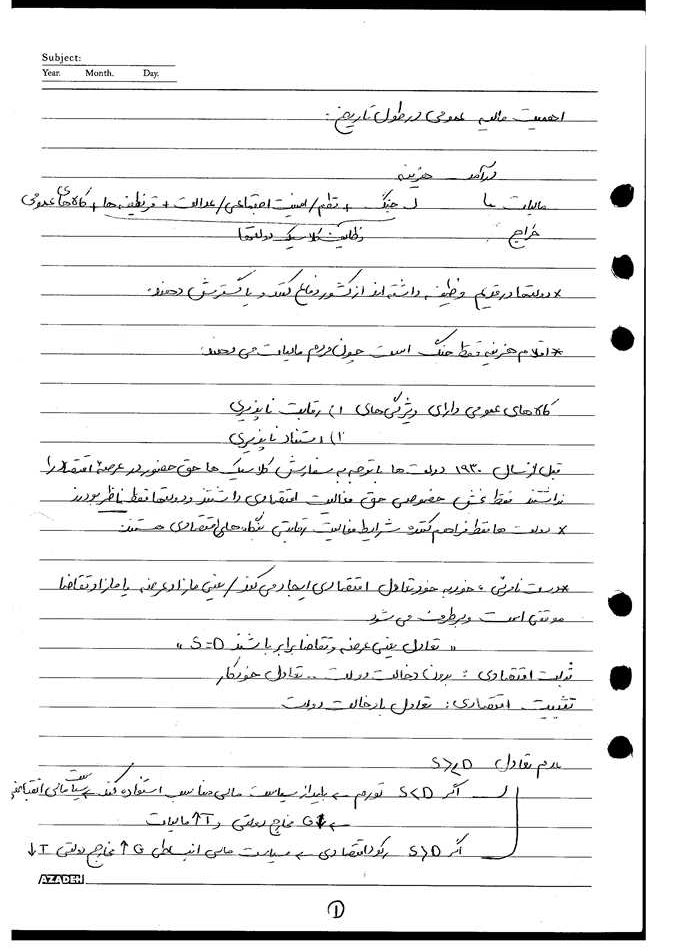 Subject:
Year. Month. Day.
اهمیت مالیه عمومی در طول تاریخ:
درآمد هزینه
مالیات ها جنگ + نظم / امنیت اجتماعی / عدالت + قرنطینه ها + کالاهای عمومی
خراج وظایف کلاسیک دولتها
* دولتها در قدیم وظیفه داشته اند از کشور دفاع کنند و یا گسترش دهند.
* اقلام هزینه فقط جنگ است چون مردم مالیات می دهند.
کالاهای عمومی دارای ویژگی های ۱) رقابت ناپذیری
۲) استثناء ناپذیری
قبل از سال ۱۹۳۰ دولت ها با توجه به سفارش کلاسیک ها حق حضور در عرصه اقتصاد را
نداشتند فقط بخش خصوصی حق فعالیت اقتصادی داشتند و دولتها فقط ناظر بودند
* دولت ها فقط فراهم کننده شرایط فعالیت رقابتی بنگاه های اقتصادی هستند
* دست نامرئی: خود به خود تعادل اقتصادی ایجاد می کند / یعنی مازاد عرضه یا مازاد تقاضا
موقتی است و برطرف می شود
« تعادل یعنی عرضه و تقاضا برابر باشند S=D »
ثبات اقتصادی: بدون دخالت دولت .. تعادل خودکار
تثبیت اقتصادی: تعادل با دخالت دولت
عدم تعادل S><D
اگر S<D تورم ← باید از سیاست مالی مناسب استفاده کند ← سیاست مالی انقباضی
← G↓ مخارج دولتی و T↑ مالیات
اگر S>D رکود اقتصادی ← سیاست مالی انبساطی G↑ مخارج دولتی T↓
AZADEH
1